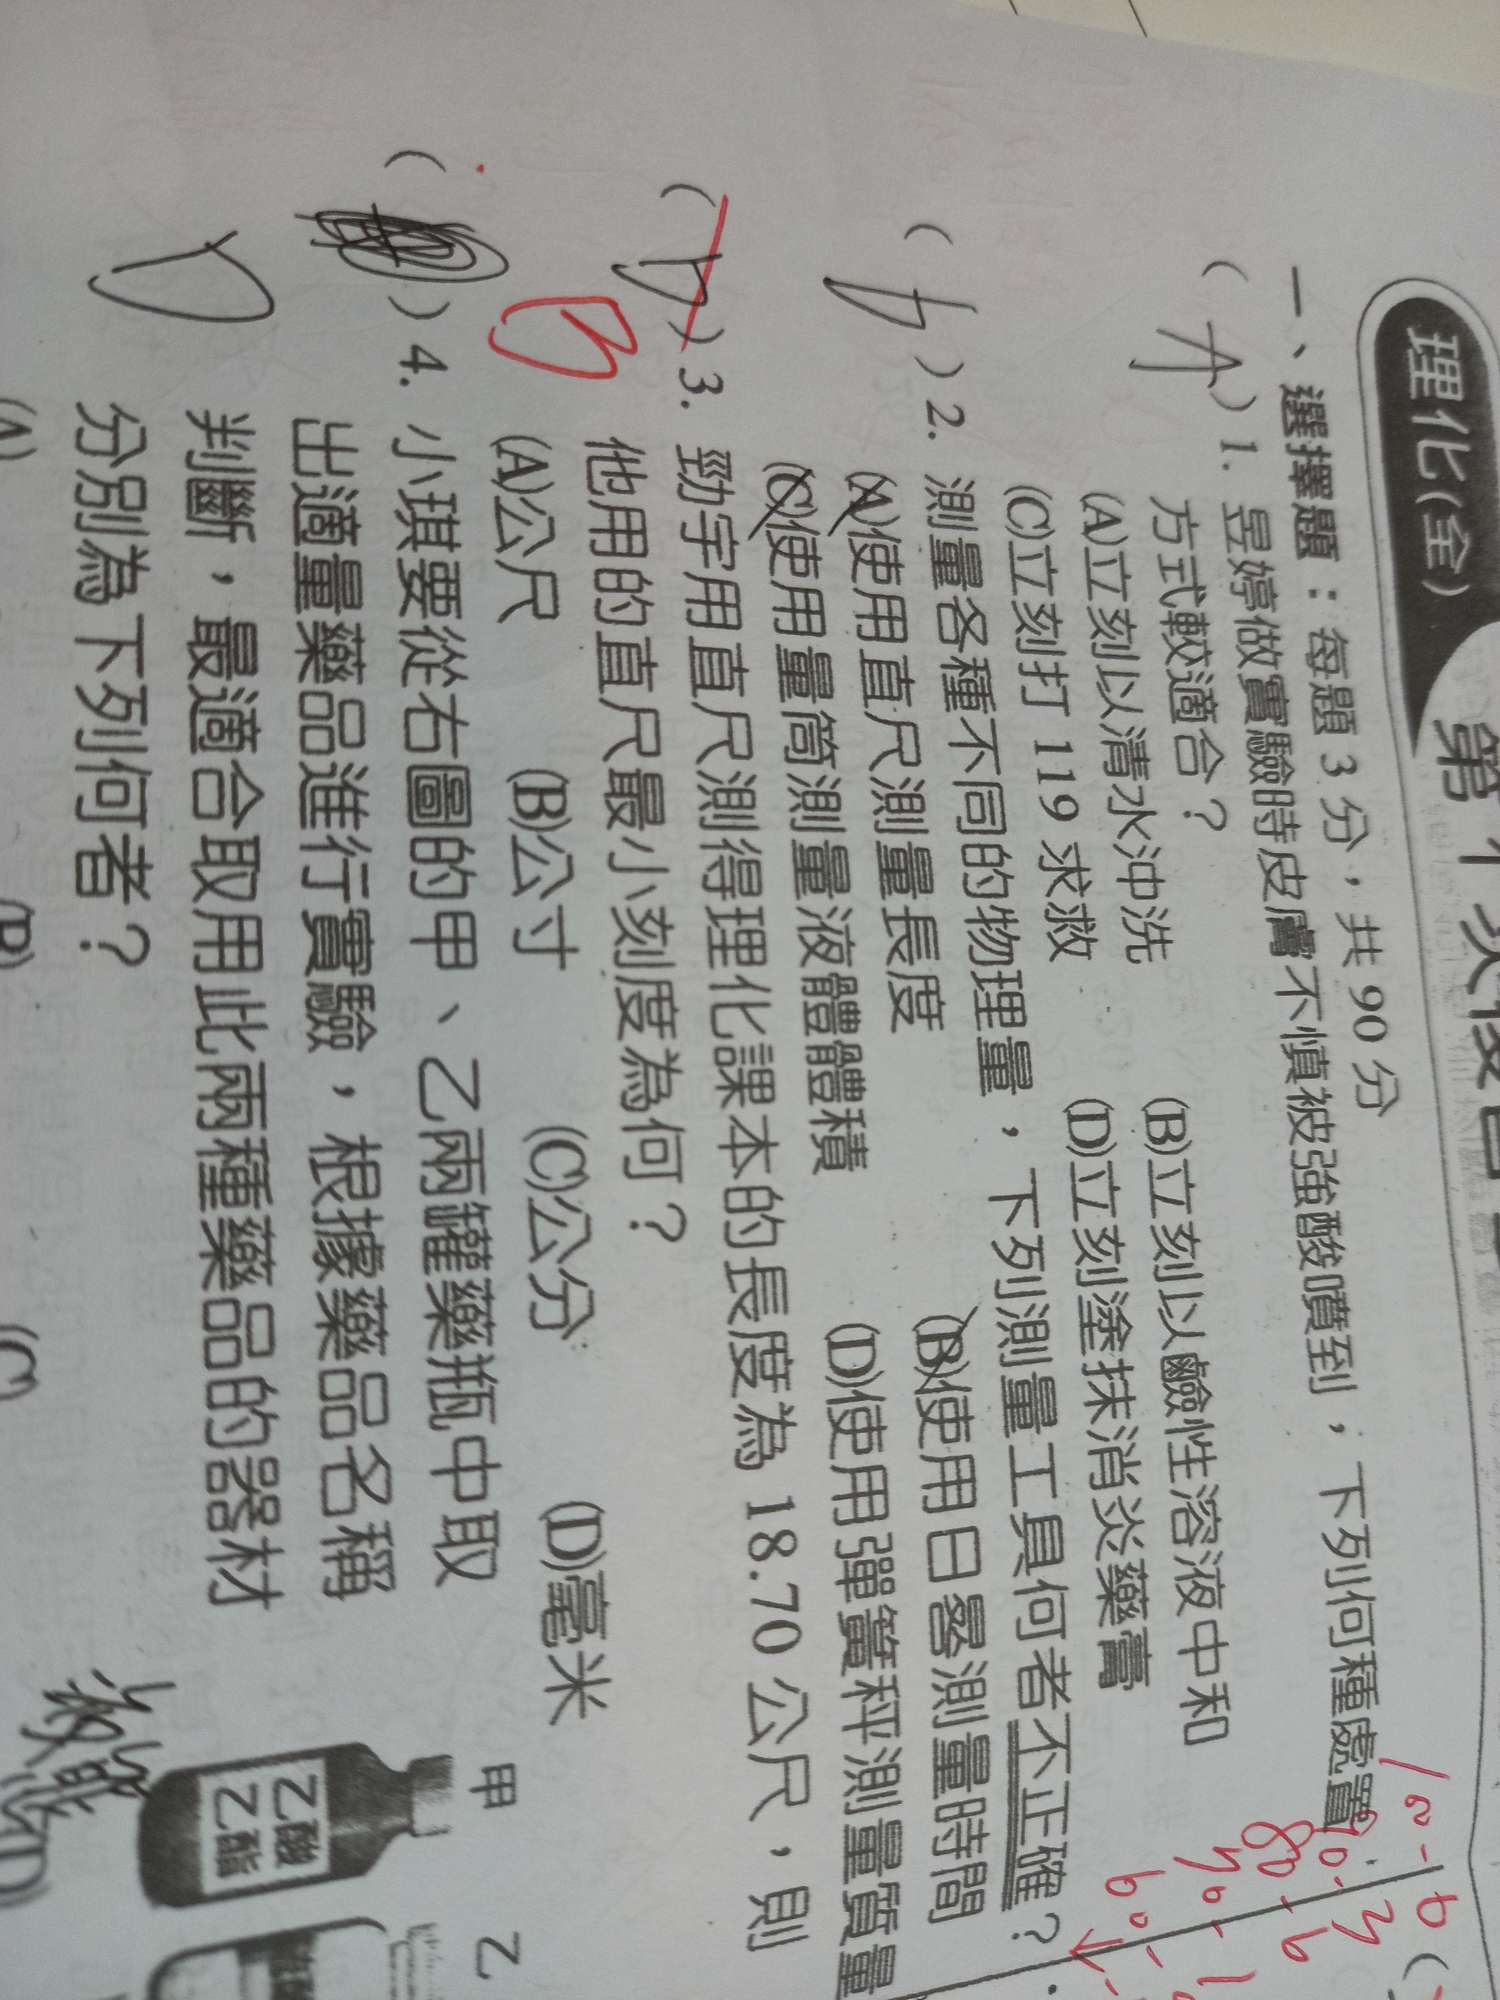 理化(全)
一、選擇題：每題 3 分，共 90 分
( A ) 1. 昱婷做實驗時皮膚不慎被強酸噴到，下列何種處置
方式較適合？
(A)立刻以清水沖洗 (B)立刻以鹼性溶液中和
(C)立刻打 119 求救 (D)立刻塗抹消炎藥膏
( ) 2. 測量各種不同的物理量，下列測量工具何者不正確？
(A)使用直尺測量長度 (B)使用日晷測量時間
(C)使用量筒測量液體體積 (D)使用彈簧秤測量質量
( D ) 3. 勁宇用直尺測得理化課本的長度為 18.70 公尺，則
他用的直尺最小刻度為何？
B
(A)公尺 (B)公寸 (C)公分 (D)毫米
( ) 4. 小琪要從右圖的甲、乙兩罐藥瓶中取
出適量藥品進行實驗，根據藥品名稱
判斷，最適合取用此兩種藥品的器材
分別為下列何者？
D
甲
乙酸
乙酯
乙
液態
(A) (B) (C) (D)